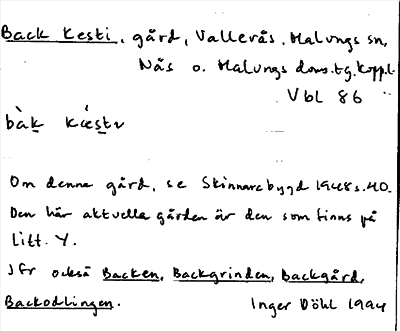 Back Kesti, gård, Vallerås, Malungs sn,
Nås o. Malungs doms.tg. Koppl.
Vbl 86
bàk kæstv
Om denne gård, se Skinnarebygd 1948 s. 40.
Den här aktuella gården är den som finns på
litt. Y.
Jfr också Backen, Backgrinden, Backgård,
Backodlingen. Inger Döhl 1994